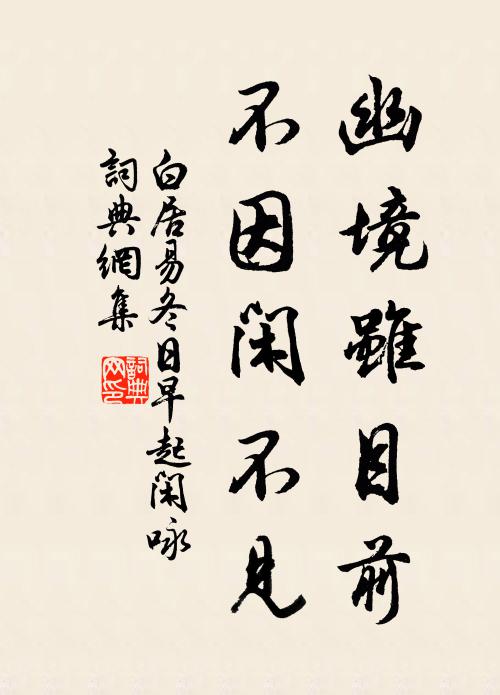 幽境雖目前
不因閑不見
白居易冬日早起閑咏
詞典網集
詞典
网印